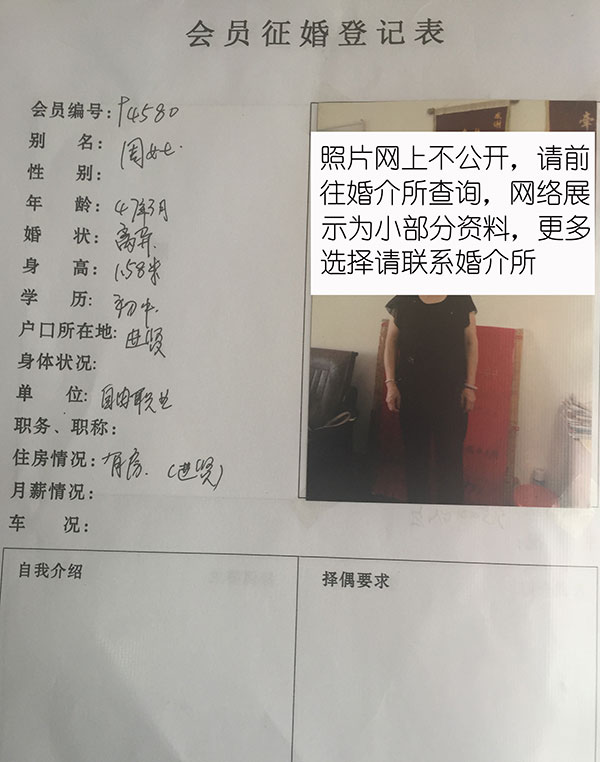 会员征婚登记表
会员编号：P4580
别 名：周女士
性 别：
年 龄：47年3月
婚 状：离异
身 高：1.58米
学 历：初中
户口所在地：进贤
身体状况：
单 位：自由职业
职务、职称：
住房情况：有房.（进贤）
月薪情况：
车 况：
照片网上不公开，请前
往婚介所查询，网络展
示为小部分资料，更多
选择请联系婚介所
自我介绍
择偶要求